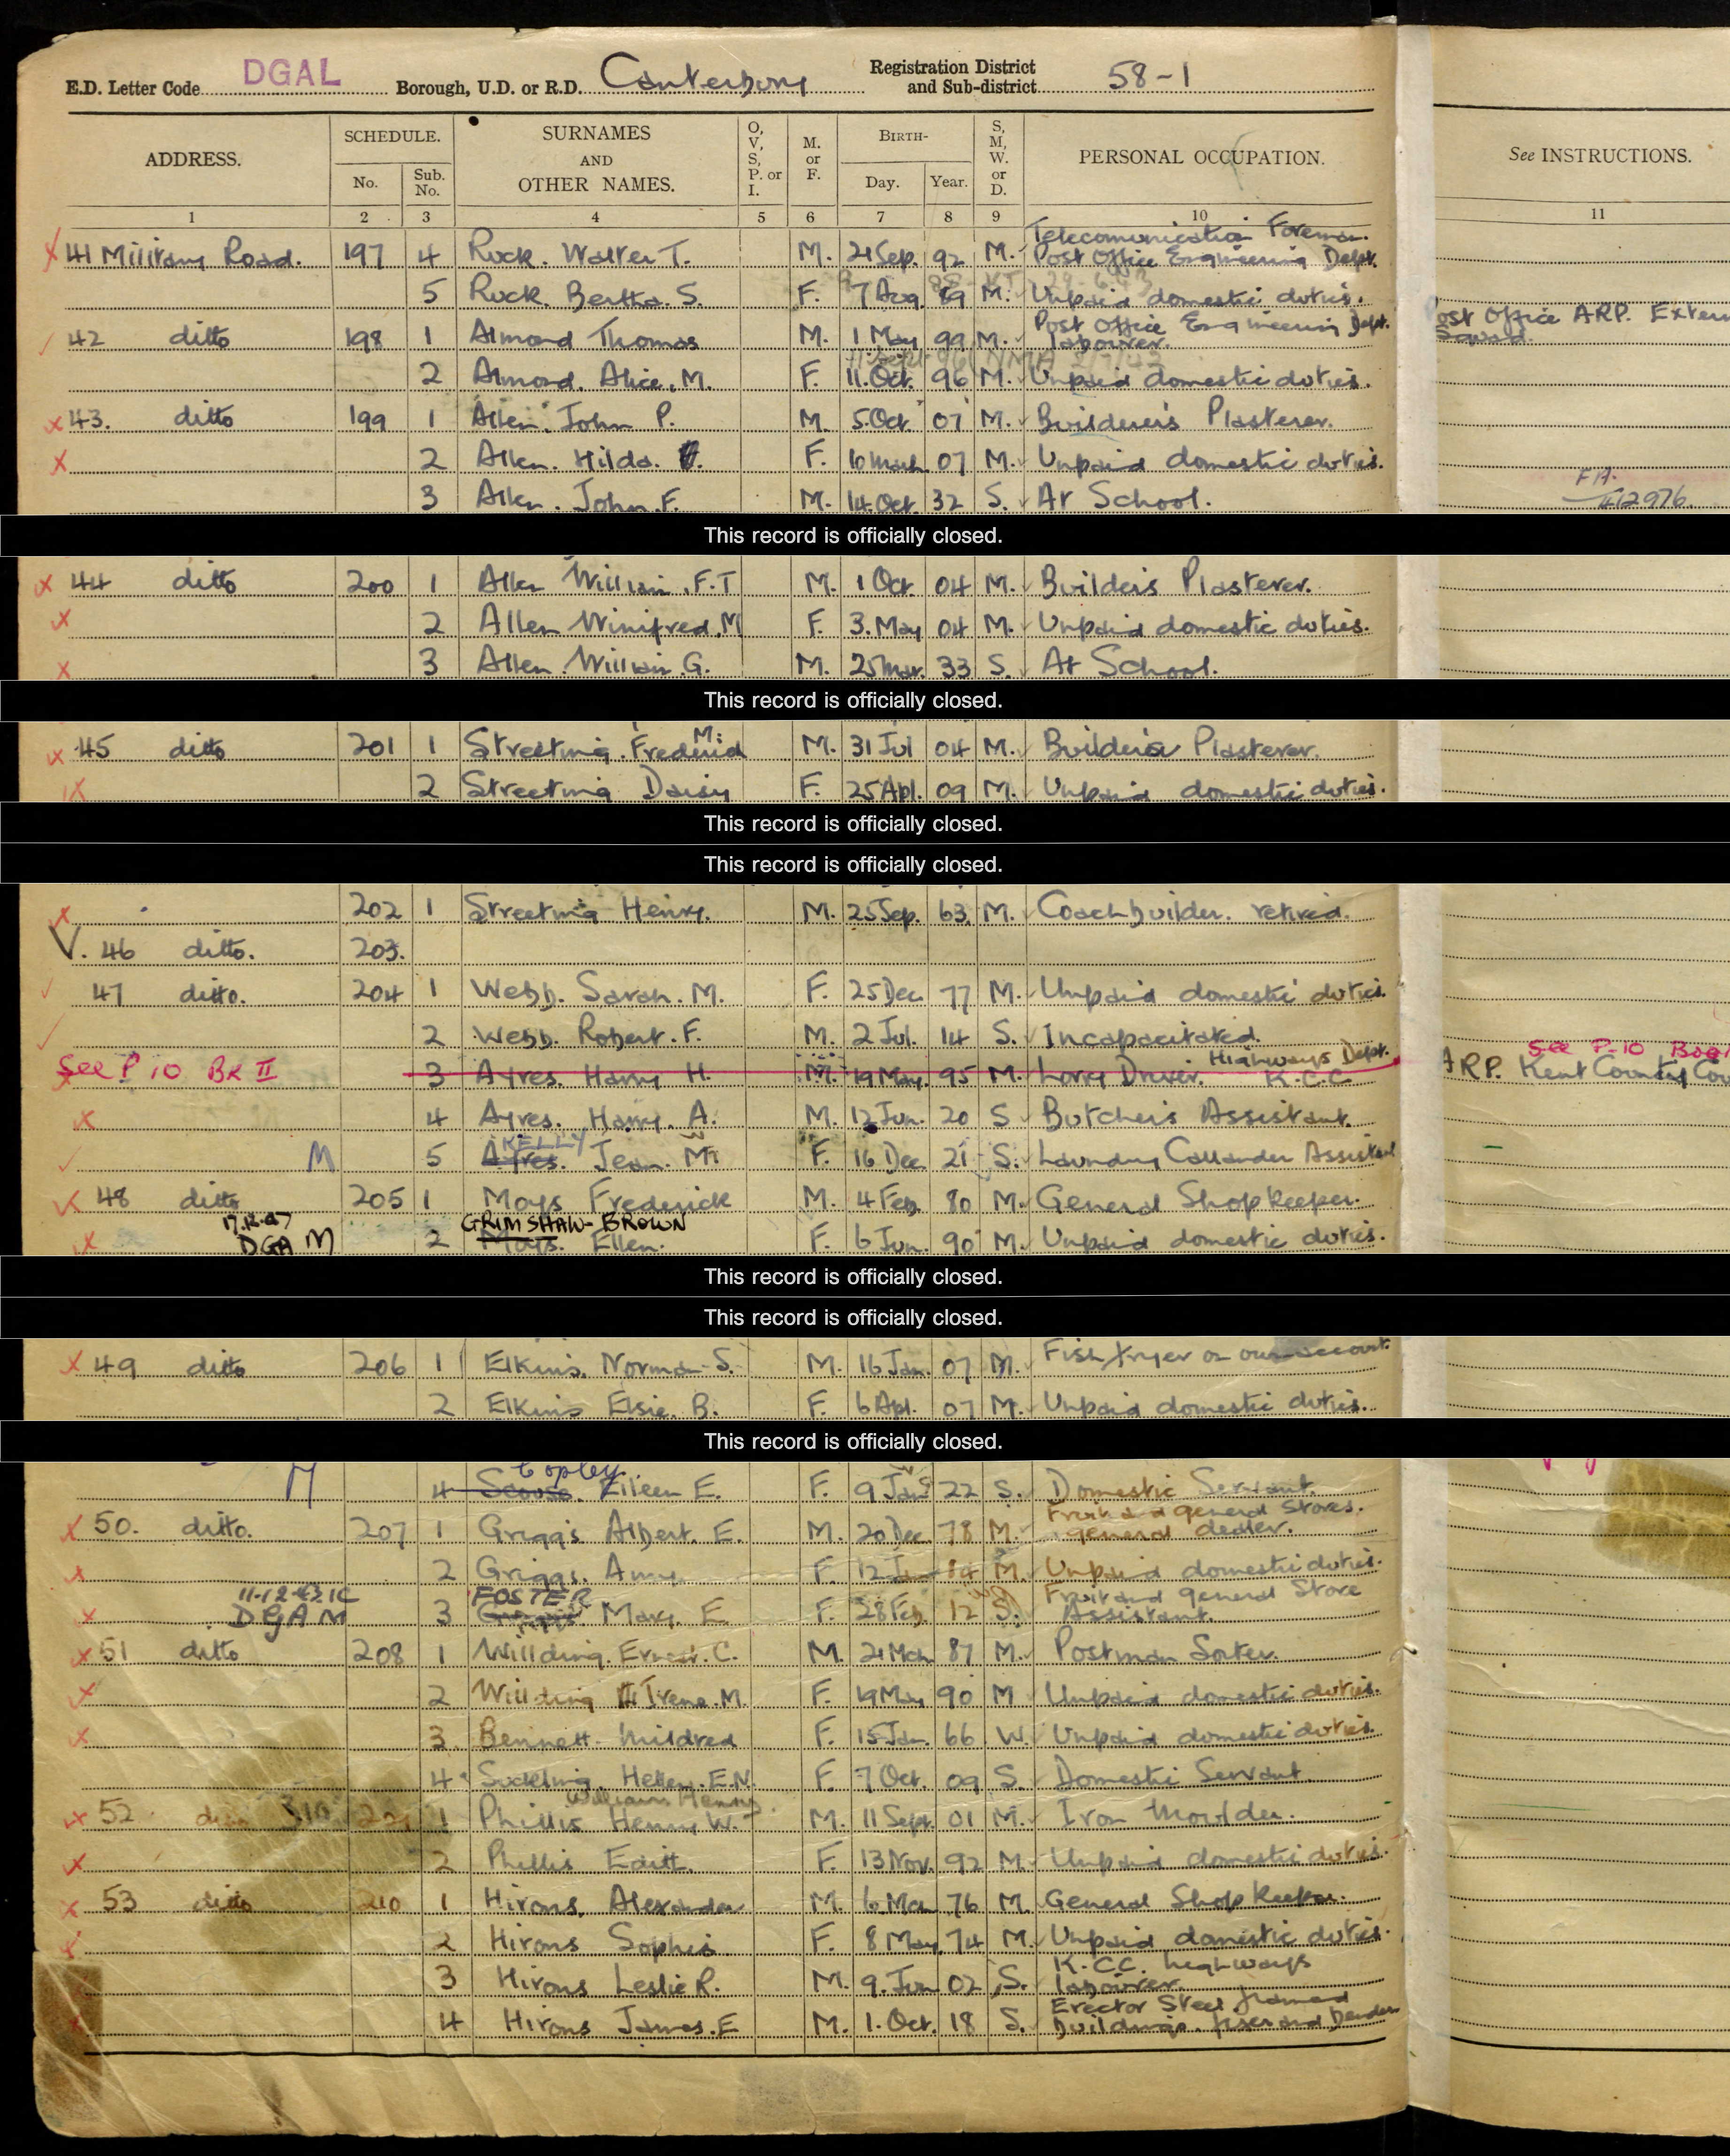 E.D. Letter Code DGAL Borough, U.D. or R.D. Canterbury Registration District and Sub-district 58-1
ADDRESS. SCHEDULE. No. Sub. No. SURNAMES AND OTHER NAMES. O, V, S, P. or I. M. or F. BIRTH- Day. Year. S, M, W. or D. PERSONAL OCCUPATION. See INSTRUCTIONS.
1 2 3 4 5 6 7 8 9 10 11
41 Military Road. 197 4 Ruck. Walter T. M. 21 Sep. 92 M. Telecomunication Foreman. Post Office Engineering Dept.
5 Ruck. Bertha. S. F. 7 Aug 89 M. Unpaid domestic duties.
42 ditto 198 1 Almond Thomas M. 1 May 99 M. Post Office Engineering Dept. labourer. Post Office ARP. Extern Squad.
2 Almond. Alice. M. F. 11. Oct. 96 M. Unpaid domestic duties.
43. ditto 199 1 Allen. John P. M. 5 Oct 07 M. Builderer's Plasterer.
2 Allen. Hilda. F. 10 March 07 M. Unpaid domestic duties.
3 Allen. John. F. M. 14 Oct. 32 S. At School. FH. 412976.
This record is officially closed.
44 ditto 200 1 Allen William. F. T M. 1 Oct. 04 M. Builder's Plasterer.
2 Allen Winifred. M F. 3. May 04 M. Unpaid domestic duties.
3 Allen. William. G. M. 25 Mar. 33 S. At School.
This record is officially closed.
45 ditto 201 1 Streeting. Frederick M. M. 31 Jul 04 M. Builder's Plasterer.
2 Streeting Daisy F. 25 Apl. 09 M. Unpaid domestic duties.
This record is officially closed.
This record is officially closed.
202 1 Streeting Henry. M. 25 Sep. 63 M. Coachbuilder. retired.
V. 46 ditto. 203.
47 ditto. 204 1 Webb. Sarah. M. F. 25 Dec 77 M. Unpaid domestic duties.
2 Webb. Robert. F. M. 2 Jul. 14 S. Incapacitated.
See P 10 BK II 3 Ayres. Harry H. M. 19 May. 95 M. Lorry Driver. Highways Dept. K.C.C See P. 10 Boo ARP. Kent County Cou
4 Ayres. Harry. A. M. 12 Jun. 20 S Butcher's Assistant.
KELLY
M 5 Ayres. Jean. M. F. 16 Dec 21 S. Laundry Callander Assistant
48 ditto 205 1 Mays Frederick M. 4 Feb 80 M. General Shopkeeper.
17.12.47 GRIMSHAW-BROWN
DGA M 2 Mays. Ellen. F. 6 Jun. 90 M. Unpaid domestic duties.
This record is officially closed.
This record is officially closed.
49 ditto 206 1 Elkins. Norman S. M. 16 Jan. 07 M. Fish fryer on own account.
2 Elkins Elsie. B. F. 6 Apl. 07 M. Unpaid domestic duties.
This record is officially closed.
Copley
M 4 Eileen E. F. 9 Jan 22 S. Domestic Servant.
50. ditto. 207 1 Griggs Albert. E. M. 20 Dec 78 M. Fruit and general Stores. general dealer.
2 Griggs. Amy. F. 12 M. Unpaid domestic duties.
FOSTER
DGA M 3 Griggs Mary. E F. 28 Feb. 12 S. Fruit and general Store Assistant.
51 ditto 208 1 Willding. Ernest. C. M. 21 Mch 87 M. Postman Sorter.
2 Willding Irene. M. F. 19 May 90 M Unpaid domestic duties.
3 Bennett Mildred F. 15 Jan. 66 W. Unpaid domestic duties.
4 Suckling. Hellen. E.N. F. 7 Oct. 09 S. Domestic Servant.
William Henry
52 ditto 1 Phillis Henry W. M. 11 Sept. 01 M. Iron Moulder.
2 Phillis Edith. F. 13 Nov. 92 M. Unpaid domestic duties.
53 ditto 210 1 Hirons. Alexander M. 6 Mch 76 M. General Shop Keeper.
2 Hirons Sophia F. 8 May 74 M. Unpaid domestic duties.
3 Hirons Leslie R. M. 9. Jun 02 S. K.C.C. highways labourer.
4 Hirons James. E M. 1. Oct. 18 S. Erector Steel framed buildings. fixer and